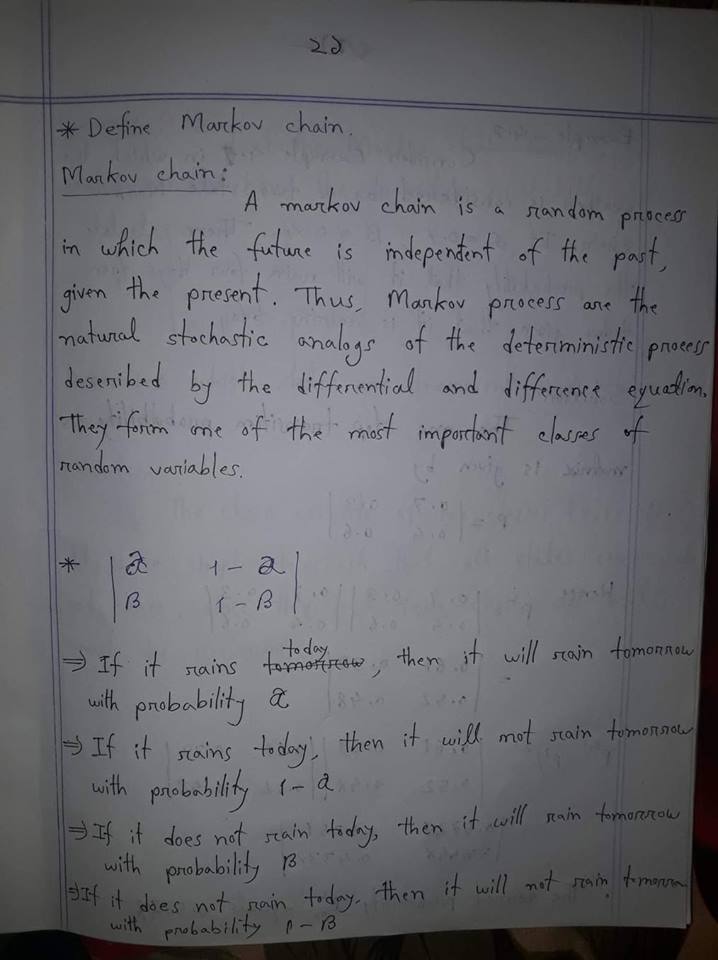 22
* Define Markov chain.
Markov chain:
A markov chain is a random process
in which the future is independent of the past,
given the present. Thus, Markov process are the
natural stochastic analogs of the deterministic process
described by the differential and difference equation.
They form one of the most important classes of
random variables.
* | α 1 - α |
| β 1 - β |
⇒ If it rains today, then it will rain tomorrow
with probability α
⇒ If it rains today, then it will not rain tomorrow
with probability 1 - α
⇒ If it does not rain today, then it will rain tomorrow
with probability β
⇒ If it does not rain today, then it will not rain tomorrow
with probability 1 - β